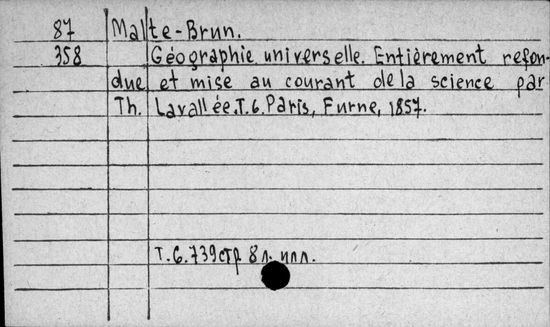 87 Malte-Brun.
358 Géographie universelle. Entièrement refon-
due et mise au courant de la science par
Th. Lavallée. T. 6. Paris, Furne, 1857.
Т. 6. 739 стр. 8 л. илл.